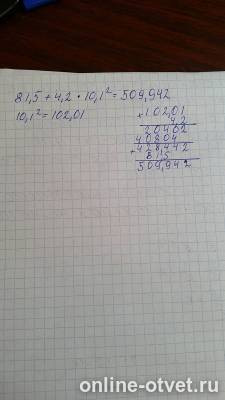 81,5 + 4,2 · 10,1² = 509,942
10,1² = 102,01
× 102,01
4,2
20402
40804
+ 428,442
81,5
509,942
online-otvet.ru